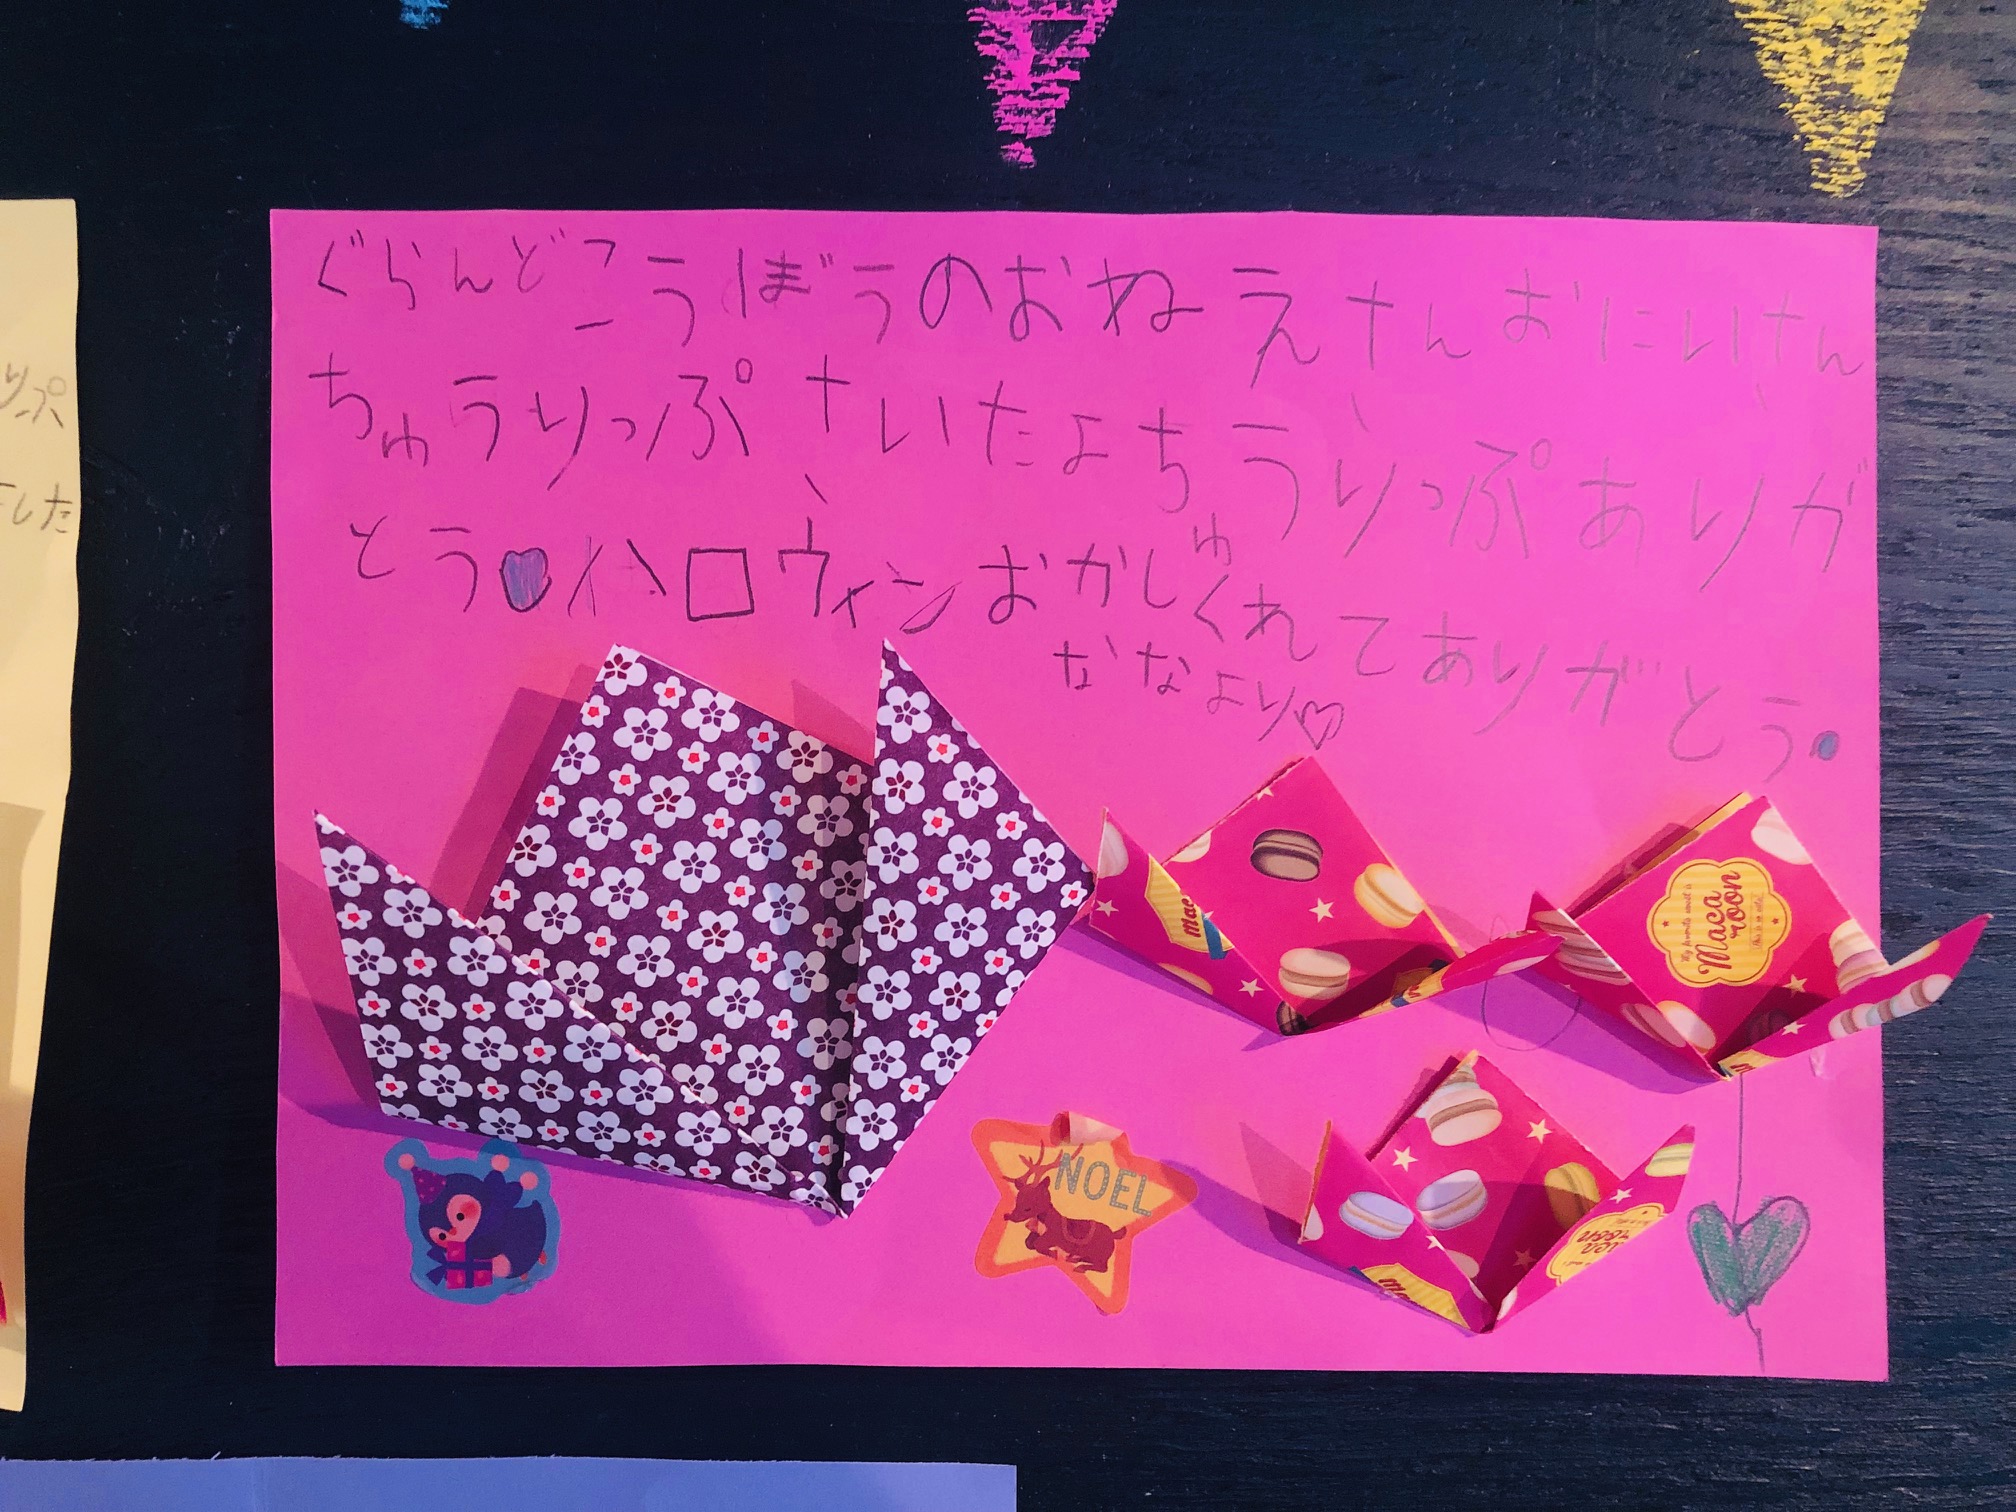 ぐらんどこうぼうのおねえさんおにいさん
ちゅうりっぷさいたよちゅうりっぷありが
とう ハロウィンおかしくれてありがとう
ななより
Maca
roon
NOEL
りっぷ
した